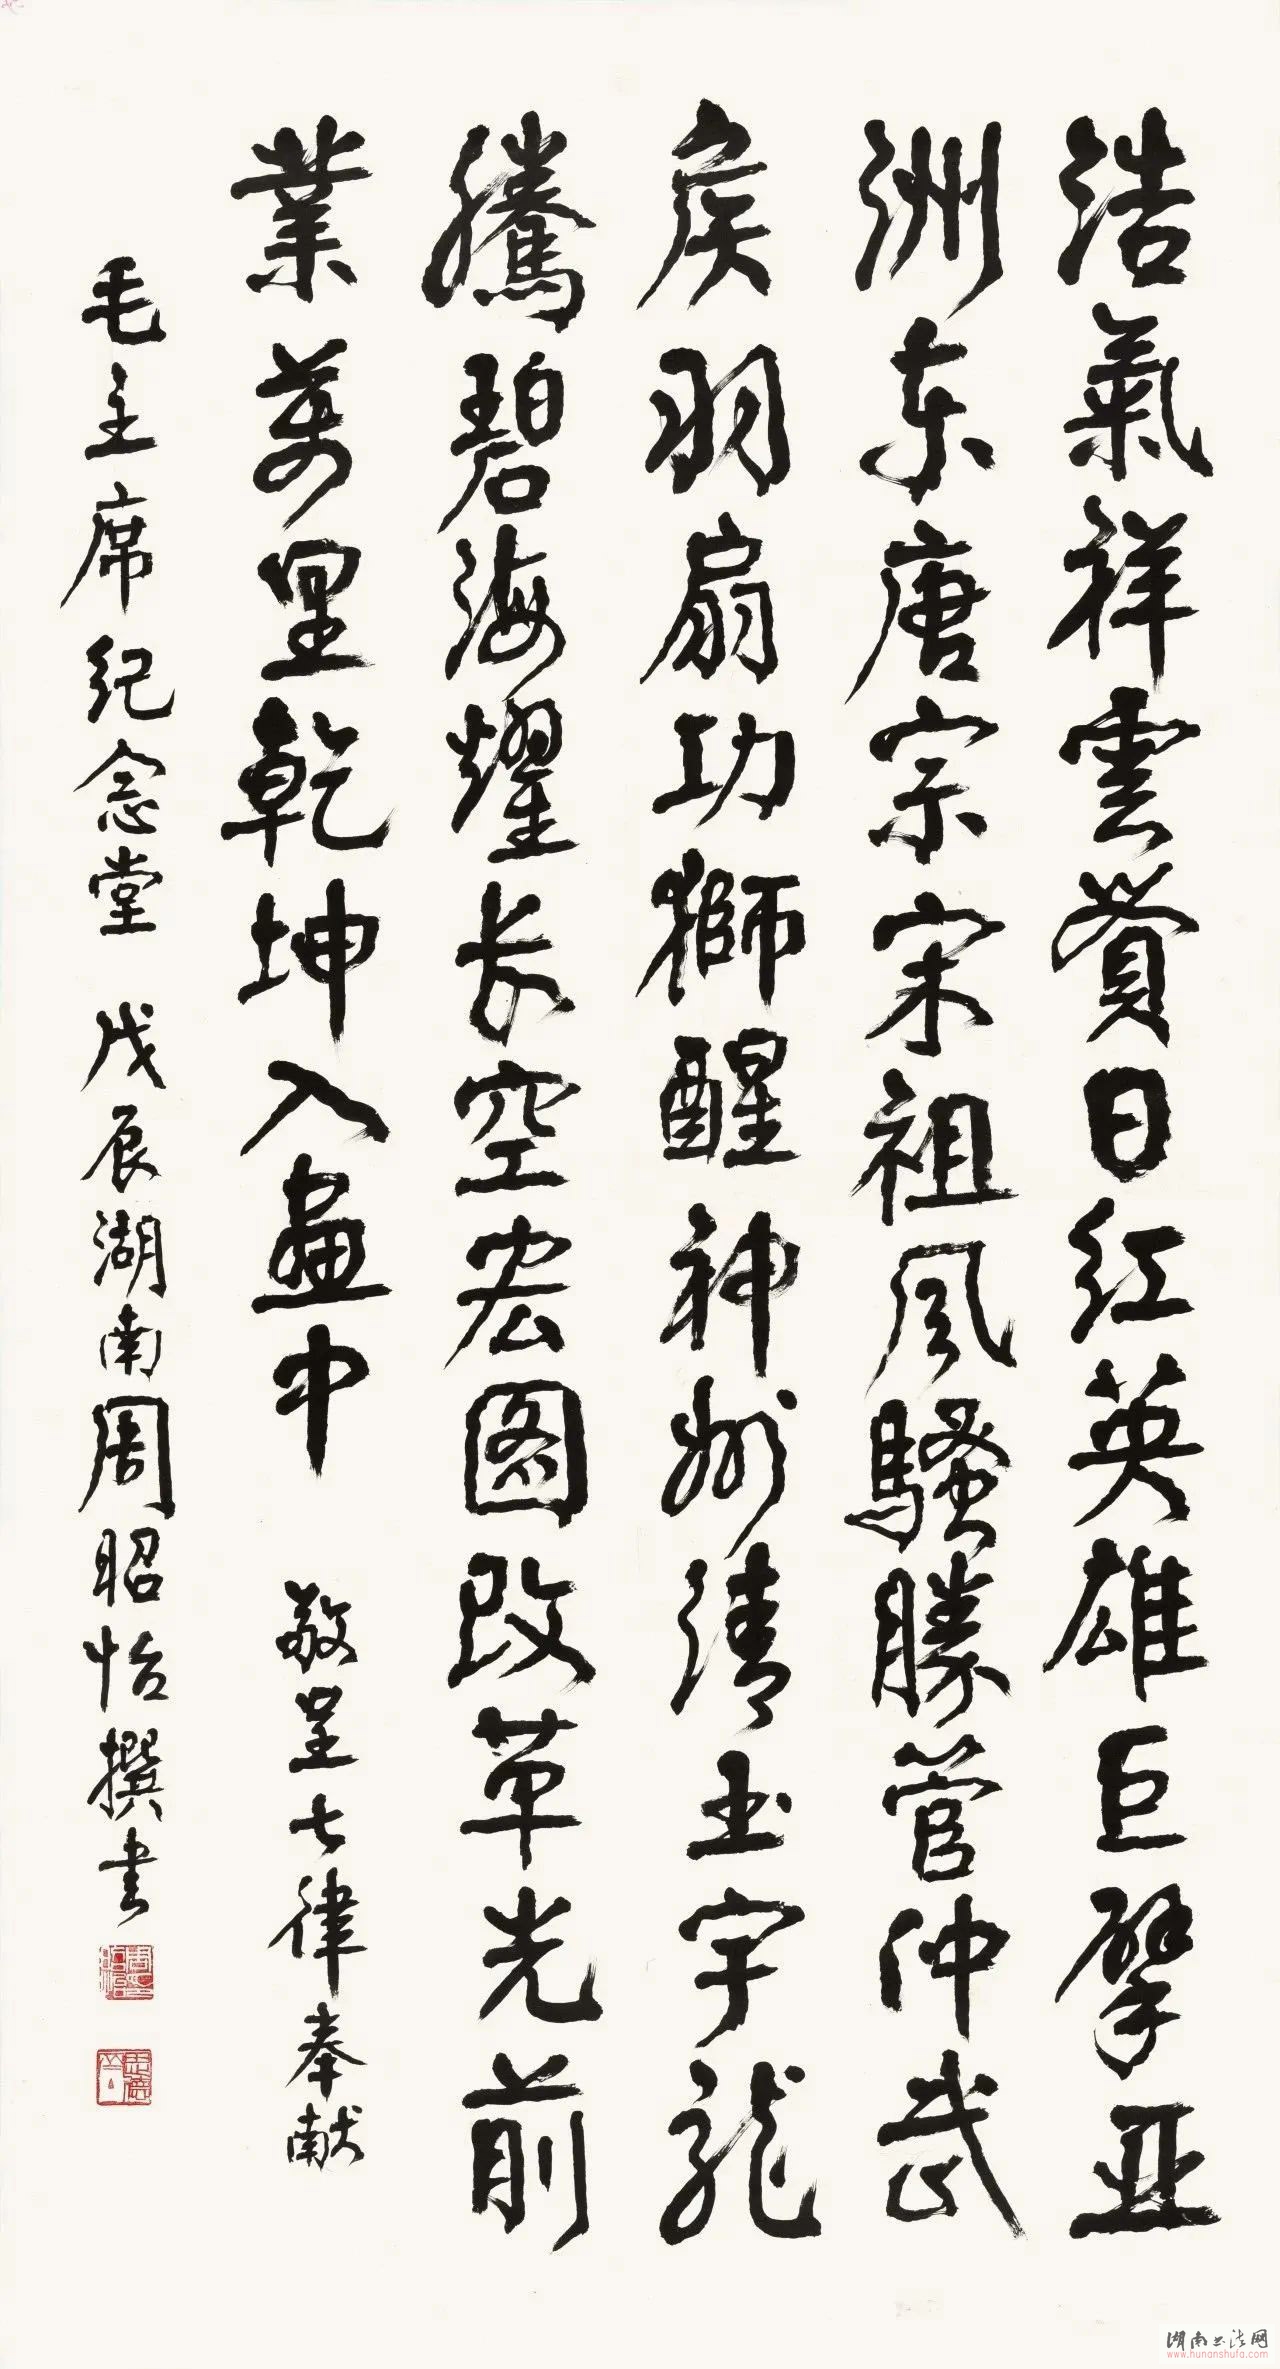 浩氣祥雲賞日红英雄巨擘亞
洲东唐宗宋祖风騷勝管仲武
侯羽扇功獅醒神州清玉宇龍
騰碧海耀长空宏图改革光前
業萬里乾坤入畫中 敬呈七律奉献
毛主席纪念堂 戊辰湖南周昭怡撰书
湖南书法网
www.hunanshufa.com